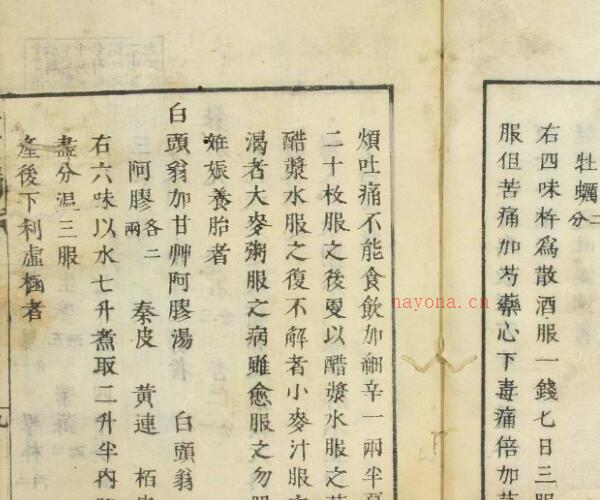 牡蠣二分
右四味杵爲散酒服一錢七日三服
服但苦痛加芍藥心下毒痛倍加芎
煩吐痛不能食飲加細辛一兩半夏
二十枚服之後更以醋漿水服之若
醋漿水服之復不解者小麥汁服之
渴者大麥粥服之病雖愈服之勿
妊娠養胎者
白頭翁加甘艸阿膠湯 白頭翁
阿膠各二兩 秦皮 黃連 栢皮
右六味以水七升煮取二升半內
盡分溫三服
產後下利虛極者
nayona.cn